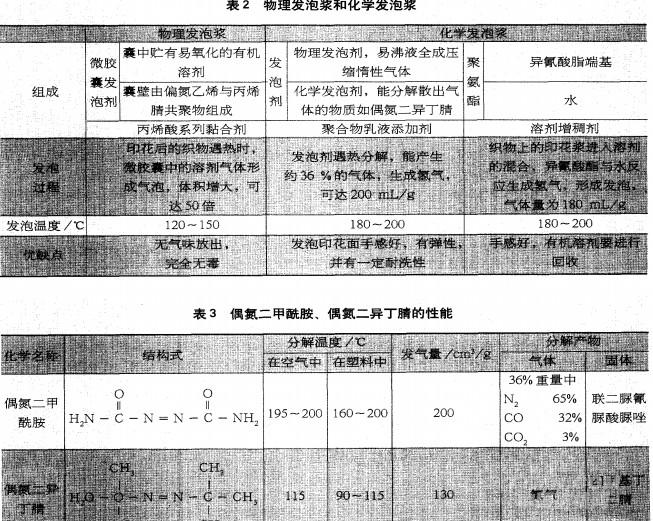 表2 物理发泡浆和化学发泡浆
物理发泡浆 化学发泡浆
组成
微胶囊发泡剂
囊中贮有易氧化的有机
溶剂
囊壁由偏氮乙烯与丙烯
腈共聚物组成
发泡剂
物理发泡剂，易沸液全成压
缩惰性气体
化学发泡剂，能分解散出气
体的物质如偶氮二异丁腈
聚氨酯
异氰酸脂端基
水
丙烯酸系列黏合剂 聚合物乳液添加剂 溶剂增稠剂
发泡
过程
印花后的织物遇热时，
微胶囊中的溶剂气体形
成气泡，体积增大，可
达50倍
发泡剂遇热分解，能产生
约36 %的气体，生成氮气，
可达200 mL/g
织物上的印花浆进入溶剂
的混合、异氰酸酯与水反
应生成氢气，形成发泡，
气体量为180 mL/g
发泡温度/℃ 120～150 180～200 180～200
优缺点
无气味放出，
完全无毒
发泡印花面手感好，有弹性，
并有一定耐洗性
手感好，有机溶剂要进行
回收
表3 偶氮二甲酰胺、偶氮二异丁腈的性能
化学名称 结构式 分解温度/℃ 发气量/cm³/g 分解产物
在空气中 在塑料中 气体 固体
偶氮二甲
酰胺
O O
H₂N － C － N = N － C － NH₂
195～200 160～200 200
36%重量中
N₂ 65%
CO 32%
CO₂ 3%
联二脲氰
脲酸脲唑
偶氮二异
丁腈
CH₃ CH₃
－ N = N － C － CH₃
115 90～115 130 氮气